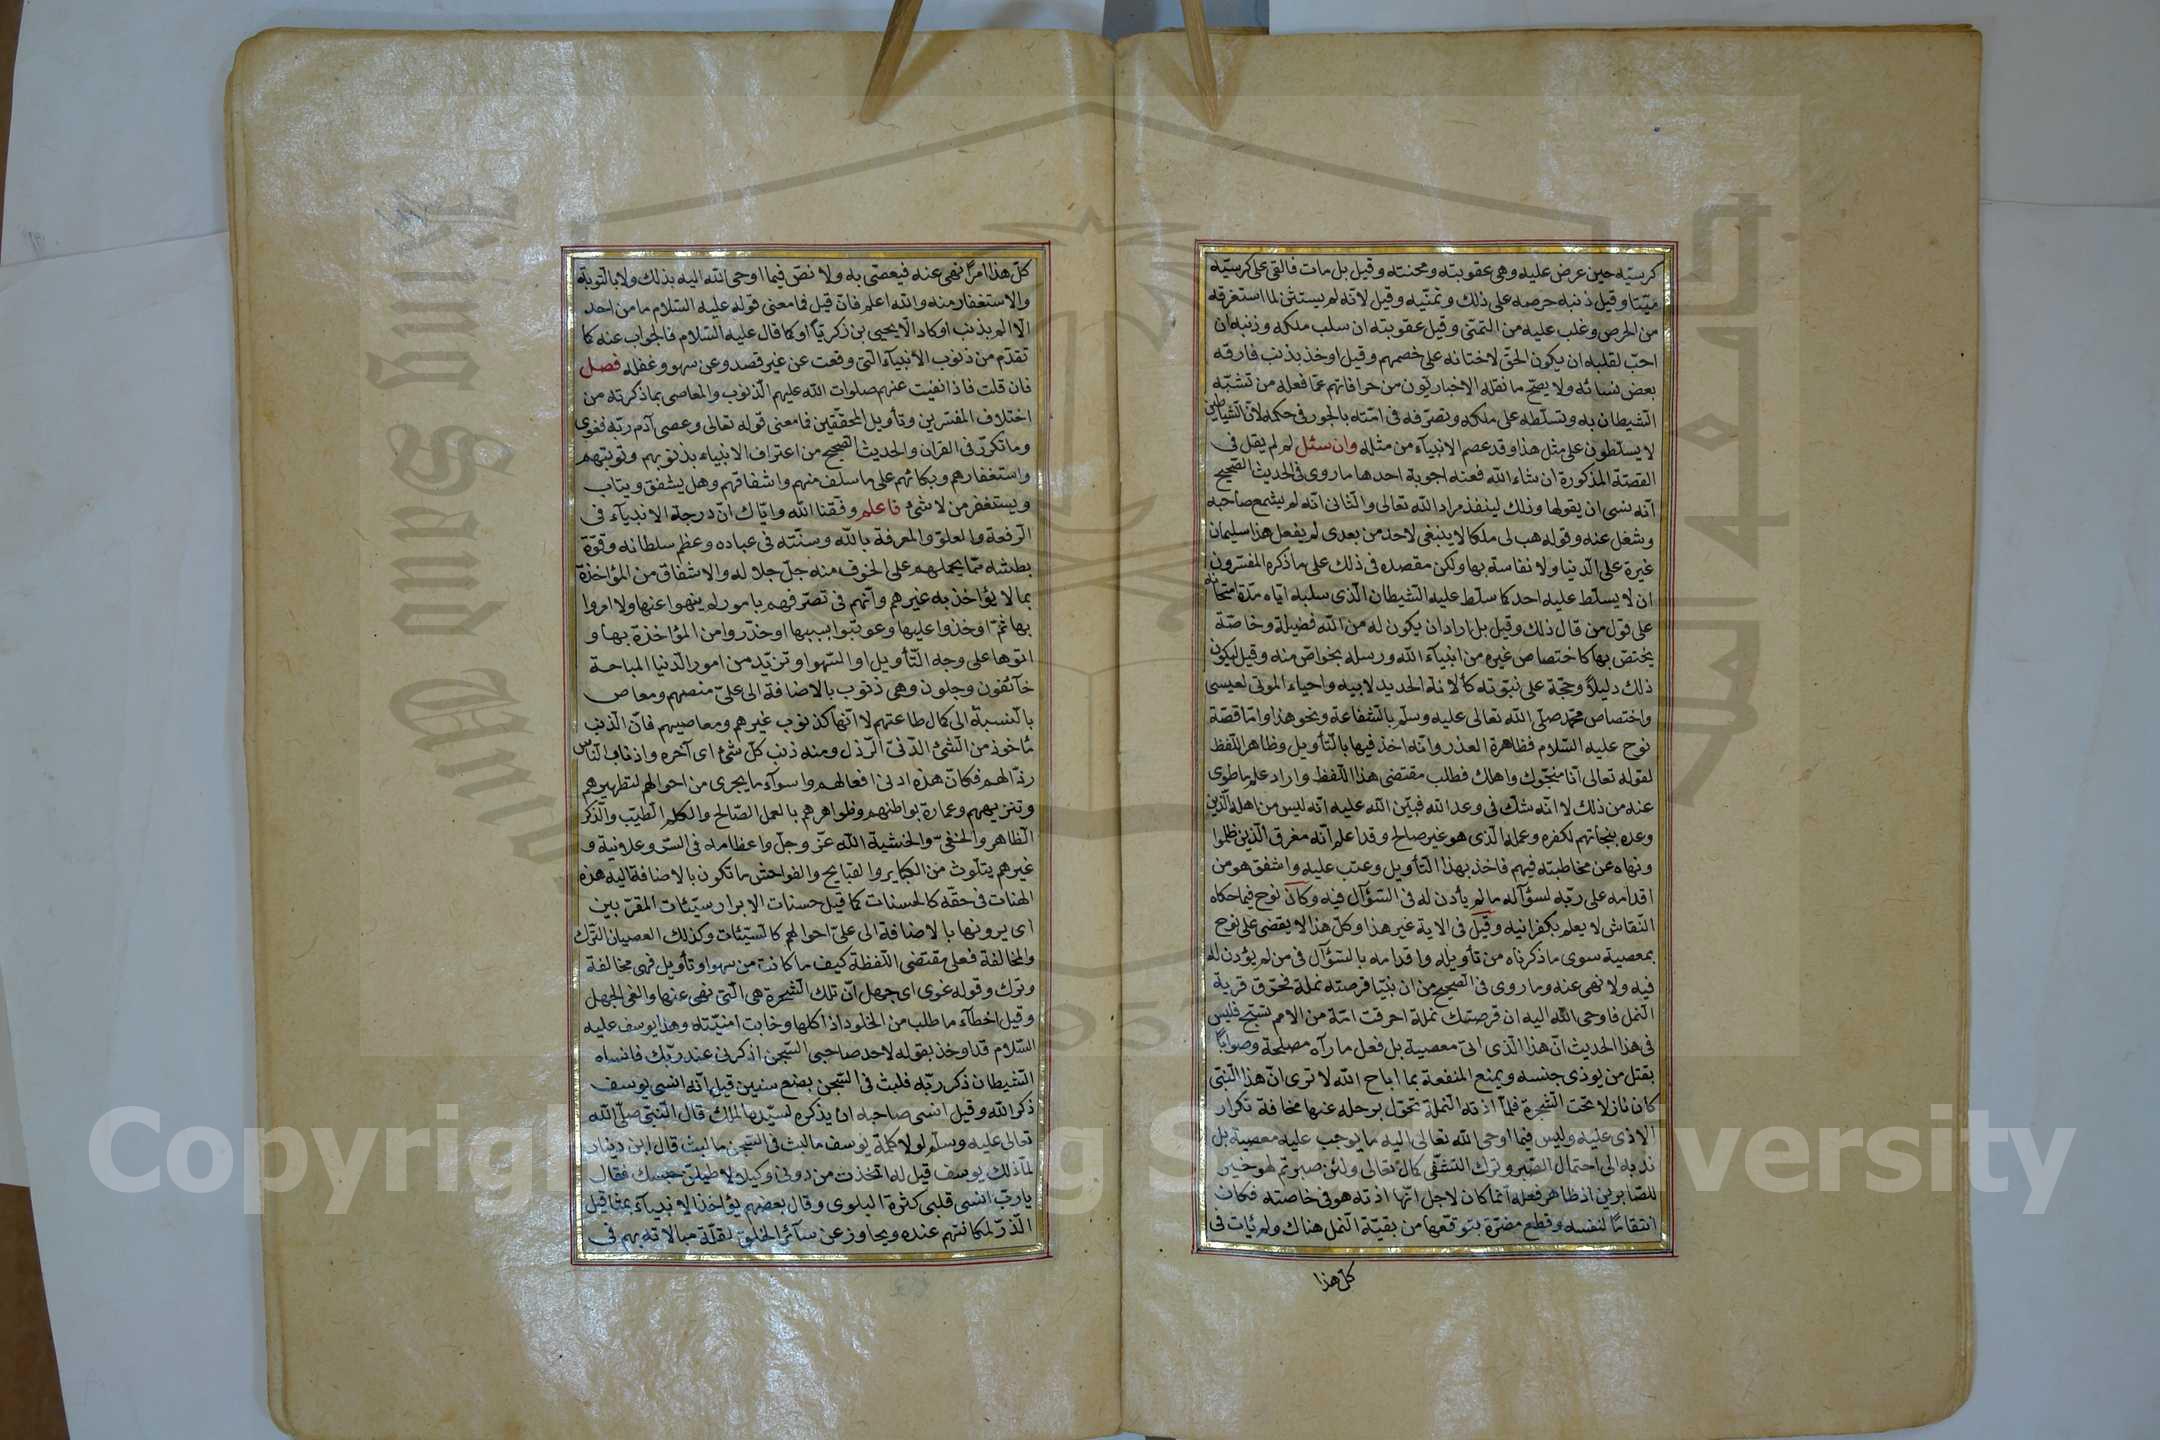 كرسيّه حين عرض عليه وهى عقوبته ومحنته وقيل بل مات فالقى على كرسيّه
ميّتا وقيل ذنبه حرصه على ذلك وتمنّيه وقيل لانّه لم يستثن لما استغرقه
من الحرص وغلب عليه من التمنّى وقيل عقوبته ان سلب ملكه وذنبه ان
احبّ لقلبه ان يكون الحقّ لاختانه على خصمهم وقيل اوخذ بذنب قارفه
بعض نسائه ولا يصحّ ما نقله الاخباريّون من خرافاتهم عمّا فعله من تشبّه
الشيطان به وتسلّطه على ملكه وتصرّفه فى امّته بالجور فى حكمه لانّ الشياطين
لا يسلّطون على مثل هذا وقد عصم الانبيآء من مثله وان سئل لم لم يقل فى
القصّة المذكورة ان شاء الله فعنه اجوبة احدها ما روى فى الحديث الصّحيح
انّه نسى ان يقولها وذلك لينفذ مراد الله تعالى والثّانى انّه لم يسمع صاحبه
وشغل عنه وقوله هب لى ملكا لا ينبغى لاحد من بعدى لم يفعل هذا سليمان
غيرة على الدّنيا ولا نفاسة بها ولكن مقصده فى ذلك على ما ذكره المفسّرون
ان لا يسلّط عليه احد كما سلّط عليه الشيطان الّذى سلبه ايّاه مدّة امتحانه
على قول من قال ذلك وقيل بل اراد ان يكون له من الله فضيلة وخاصّة
يختصّ بها كاختصاص غيره من انبيآء الله ورسله بخواصّ منه وقيل ليكون
ذلك دليلاً وحجّة على نبوّته كألانة الحديد لابيه واحياء الموتى لعيسى
واختصاص محمّد صلّى الله تعالى عليه وسلّم بالشّفاعة ونحو هذا وامّا قصّة
نوح عليه السّلام فظاهرة العذر وانّه اخذ فيها بالتّأويل وظاهر اللّفظ
لقوله تعالى انّا منجّوك واهلك فطلب مقتضى هذا اللّفظ واراد علم ما طوى
عنه من ذلك لا انّه شكّ فى وعد الله فبيّن الله عليه انّه ليس من اهله الّذين
وعده بنجاتهم لكفره وعمله الّذى هو غير صالح وقد اعلم انّه مغرق الّذين ظلموا
ونهاه عن مخاطبته فيهم فاخذ بهذا التّأويل وعتب عليه واشفق هو من
اقدامه على ربّه لسؤآله ما لم يأذن له فى السّؤآل فيه وكان نوح فيما حكاه
النّقاش لا يعلم بكفر ابنه وقيل فى الاية غير هذا وكلّ هذا لا يقضى على نوح
بمعصية سوى ما ذكرناه من تأويله واقدامه بالسّؤآل فى من لم يؤذن له
فيه ولا نهى عنه وما روى فى الصّحيح من ان نبيّا قرصته نملة فحرّق قرية
النّمل فاوحى الله اليه ان قرصتك نملة احرقت امّة من الامم تسبّح فليس
فى هذا الحديث انّ هذا الّذى اتى معصية بل فعل ما رآه مصلحة وصوابًا
بقتل من يوذى جنسه ويمنع المنفعة بما اباح الله لا ترى انّ هذا النّبىّ
كان نازلا تحت الشّجرة فلمّا اذته النّملة تحوّل برحله عنها مخافة تكرار
الاذى عليه وليس فيما اوحى الله تعالى اليه ما يوجب عليه معصية بل
ندبه الى احتمال الصّبر وترك التشفّى كما قال تعالى ولئن صبرتم لهو خير
للصّابرين اذ ظاهر فعله انّما كان لاجل انّها اذته هو فى خاصته فكان
انتقامًا لنفسه وقطع مضرّة يتوقّعها من بقيّة النّمل هناك ولم يأت فى
كلّ هذا
كلّ هذا امرًا نهى عنه فيعصّى به ولا نصّ فيما اوحى الله اليه بذلك ولا بالتّوبة
والاستغفار منه والله اعلم فان قيل فما معنى قوله عليه السّلام ما من احد
الا الم بذنب او كاد الّا يحيى بن زكريّا او كما قال عليه السّلام فالجواب عنه كما
تقدّم من ذنوب الانبيآء الّتى وقعت عن غير قصد وعن سهو وغفلة فصل
فان قلت فاذا نفيت عنهم صلوات الله عليهم الّذنوب والمعاصى بما ذكرته من
اختلاف المفسّرين وتأويل المحقّقين فما معنى قوله تعالى وعصى آدم ربّه فغوى
وما تكرّر فى القران والحديث الصّحيح من اعتراف الانبياء بذنوبهم وتوبتهم
واستغفارهم وبكائهم على ما سلف منهم واشفاقهم وهل يشفق ويتاب
ويستغفر من لا شئ فاعلم وفّقنا الله وايّاك انّ درجة الانبيآء فى
الرّفعة والعلوّ والمعرفة بالله وسنّته فى عباده وعظم سلطانه وقوّة
بطشه ممّا يحملهم على الخوف منه جلّ جلاله والاشفاق من المؤاخذة
بما لا يؤاخذ به غيرهم وانّهم فى تصرّفهم بامور لم ينهوا عنها ولا امروا
بها ثمّ اوخذوا عليها وعوتبوا بسببها او حذّروا من المؤاخذة بها و
اتوها على وجه التّأويل او السّهو او تزيّد من امور الدّنيا المباحة
خآئفون وجلون وهى ذنوب بالاضافة الى علىّ منصبهم ومعاص
بالنّسبة الى كمال طاعتهم لا انّها كذنوب غيرهم ومعاصيهم فانّ الّذنب
مأخوذ من الشّئ الدّنىّ الرّذل ومنه ذنب كلّ شئ اى آخره واذناب النّاس
رذّالهم فكانّ هذه ادنى افعالهم واسوآء ما يجرى من احوالهم لتطهيرهم
وتنزيههم وعمارة بواطنهم وظواهرهم بالعمل الصّالح والكلم الطّيّب والذّكر
الظّاهر والخفىّ والخشية الله عزّ وجلّ واعظامه فى السّرّ وعلانية و
غيرهم يتلوث من الكبآير والقبايح والفواحش ما تكون بالاضافة اليه هذه
الهنات فى حقّه كالحسنات كما قيل حسنات الابرار سيّئات المقرّبين
اى يرونها بالاضافة الى علىّ احوالهم كالسّيّئات وكذلك العصيان التّرك
والمخالفة فعلى مقتضى اللّفظة كيف ما كانت من سهو او تأويل فهى مخالفة
وترك وقوله غوى اى جهل انّ تلك الشّجرة هى الّتى نهى عنها والغى الجهل
وقيل اخطآء ما طلب من الخلود اذ اكلها وخابت امنيّته وهذا يوسف عليه
السّلام قد اوخذ بقوله لاحد صاحبى السّجن اذكرنى عند ربّك فانساه
الشيطان ذكر ربّه فلبث فى السّجن بضع سنين قيل انّه انسى يوسف
ذكر الله وقيل انسى صاحبه ان يذكره لسيّدها لملك قال النّبىّ صلّى الله
تعالى عليه وسلّم لولا كلمة يوسف ما لبث فى السّجن ما لبث قال ابن دينار
لمّا ذلك يوسف قيل له اتّخذت من دونى وكيلا لاطيلنّ حبسك فقال
يا ربّ انسى قلبى كثرة البلوى وقال بعضهم يؤاخذ الانبيآء بمثاقيل
الذّرّ لمكانتهم عنده ويجاوز عن سآئر الخلق لقلّة مبالاته بهم فى